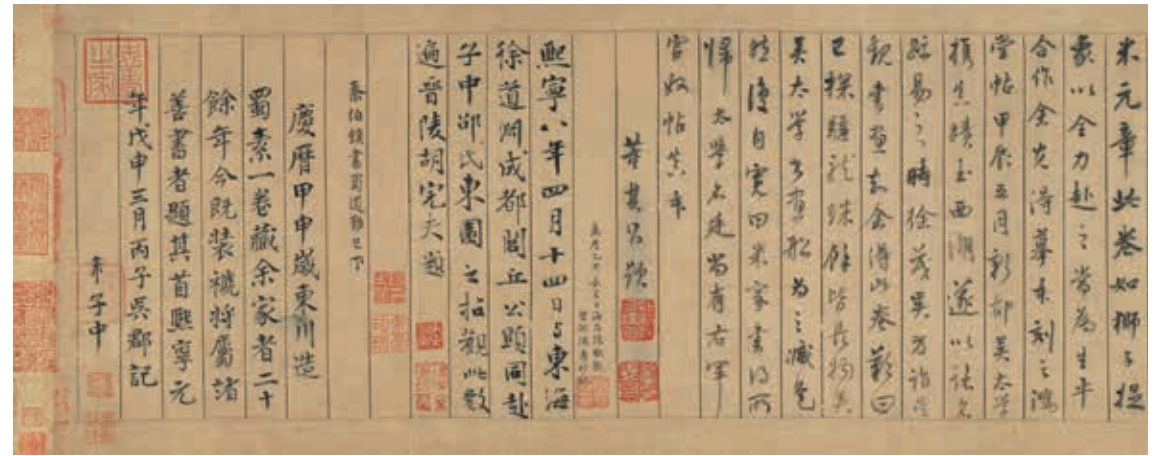 米元章此卷如獅子捉
象以全力赴之當為生平
合作余先得摹本刻之鴻
堂帖甲辰五月新都吳太學
攜真蹟至西湖遂以諸名
跡易之時徐茂吳方詣吳
觀書畫知余得此卷歎曰
已探驪龍珠餘皆長物矣
吳太學書畫船為之減色
然復自寬曰米家書得所
歸太學名廷尚有右軍
官奴帖真本
董其昌題
熙寧八年四月十四日与東海
徐道淵成都閭丘公顯同赴
子中邵氏東園之招觀此數
遍晉陵胡完夫題
慶曆甲申歲東川造
蜀素一卷藏余家者二十
餘年今既裝褫將屬諸
善書者題其首熙寧元
年戊申三月丙子吳郡記
子中